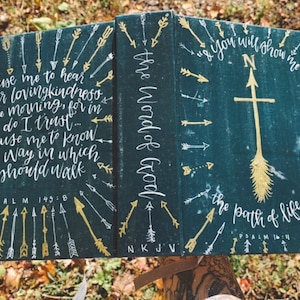 use me to hear
r lovingkindness
e morning, for in
do I trust...
use me to know
Way in which
should walk
SALM 143:8
the Word of God
NKJV
You will show me
N
the path of life
PSALM 16:11